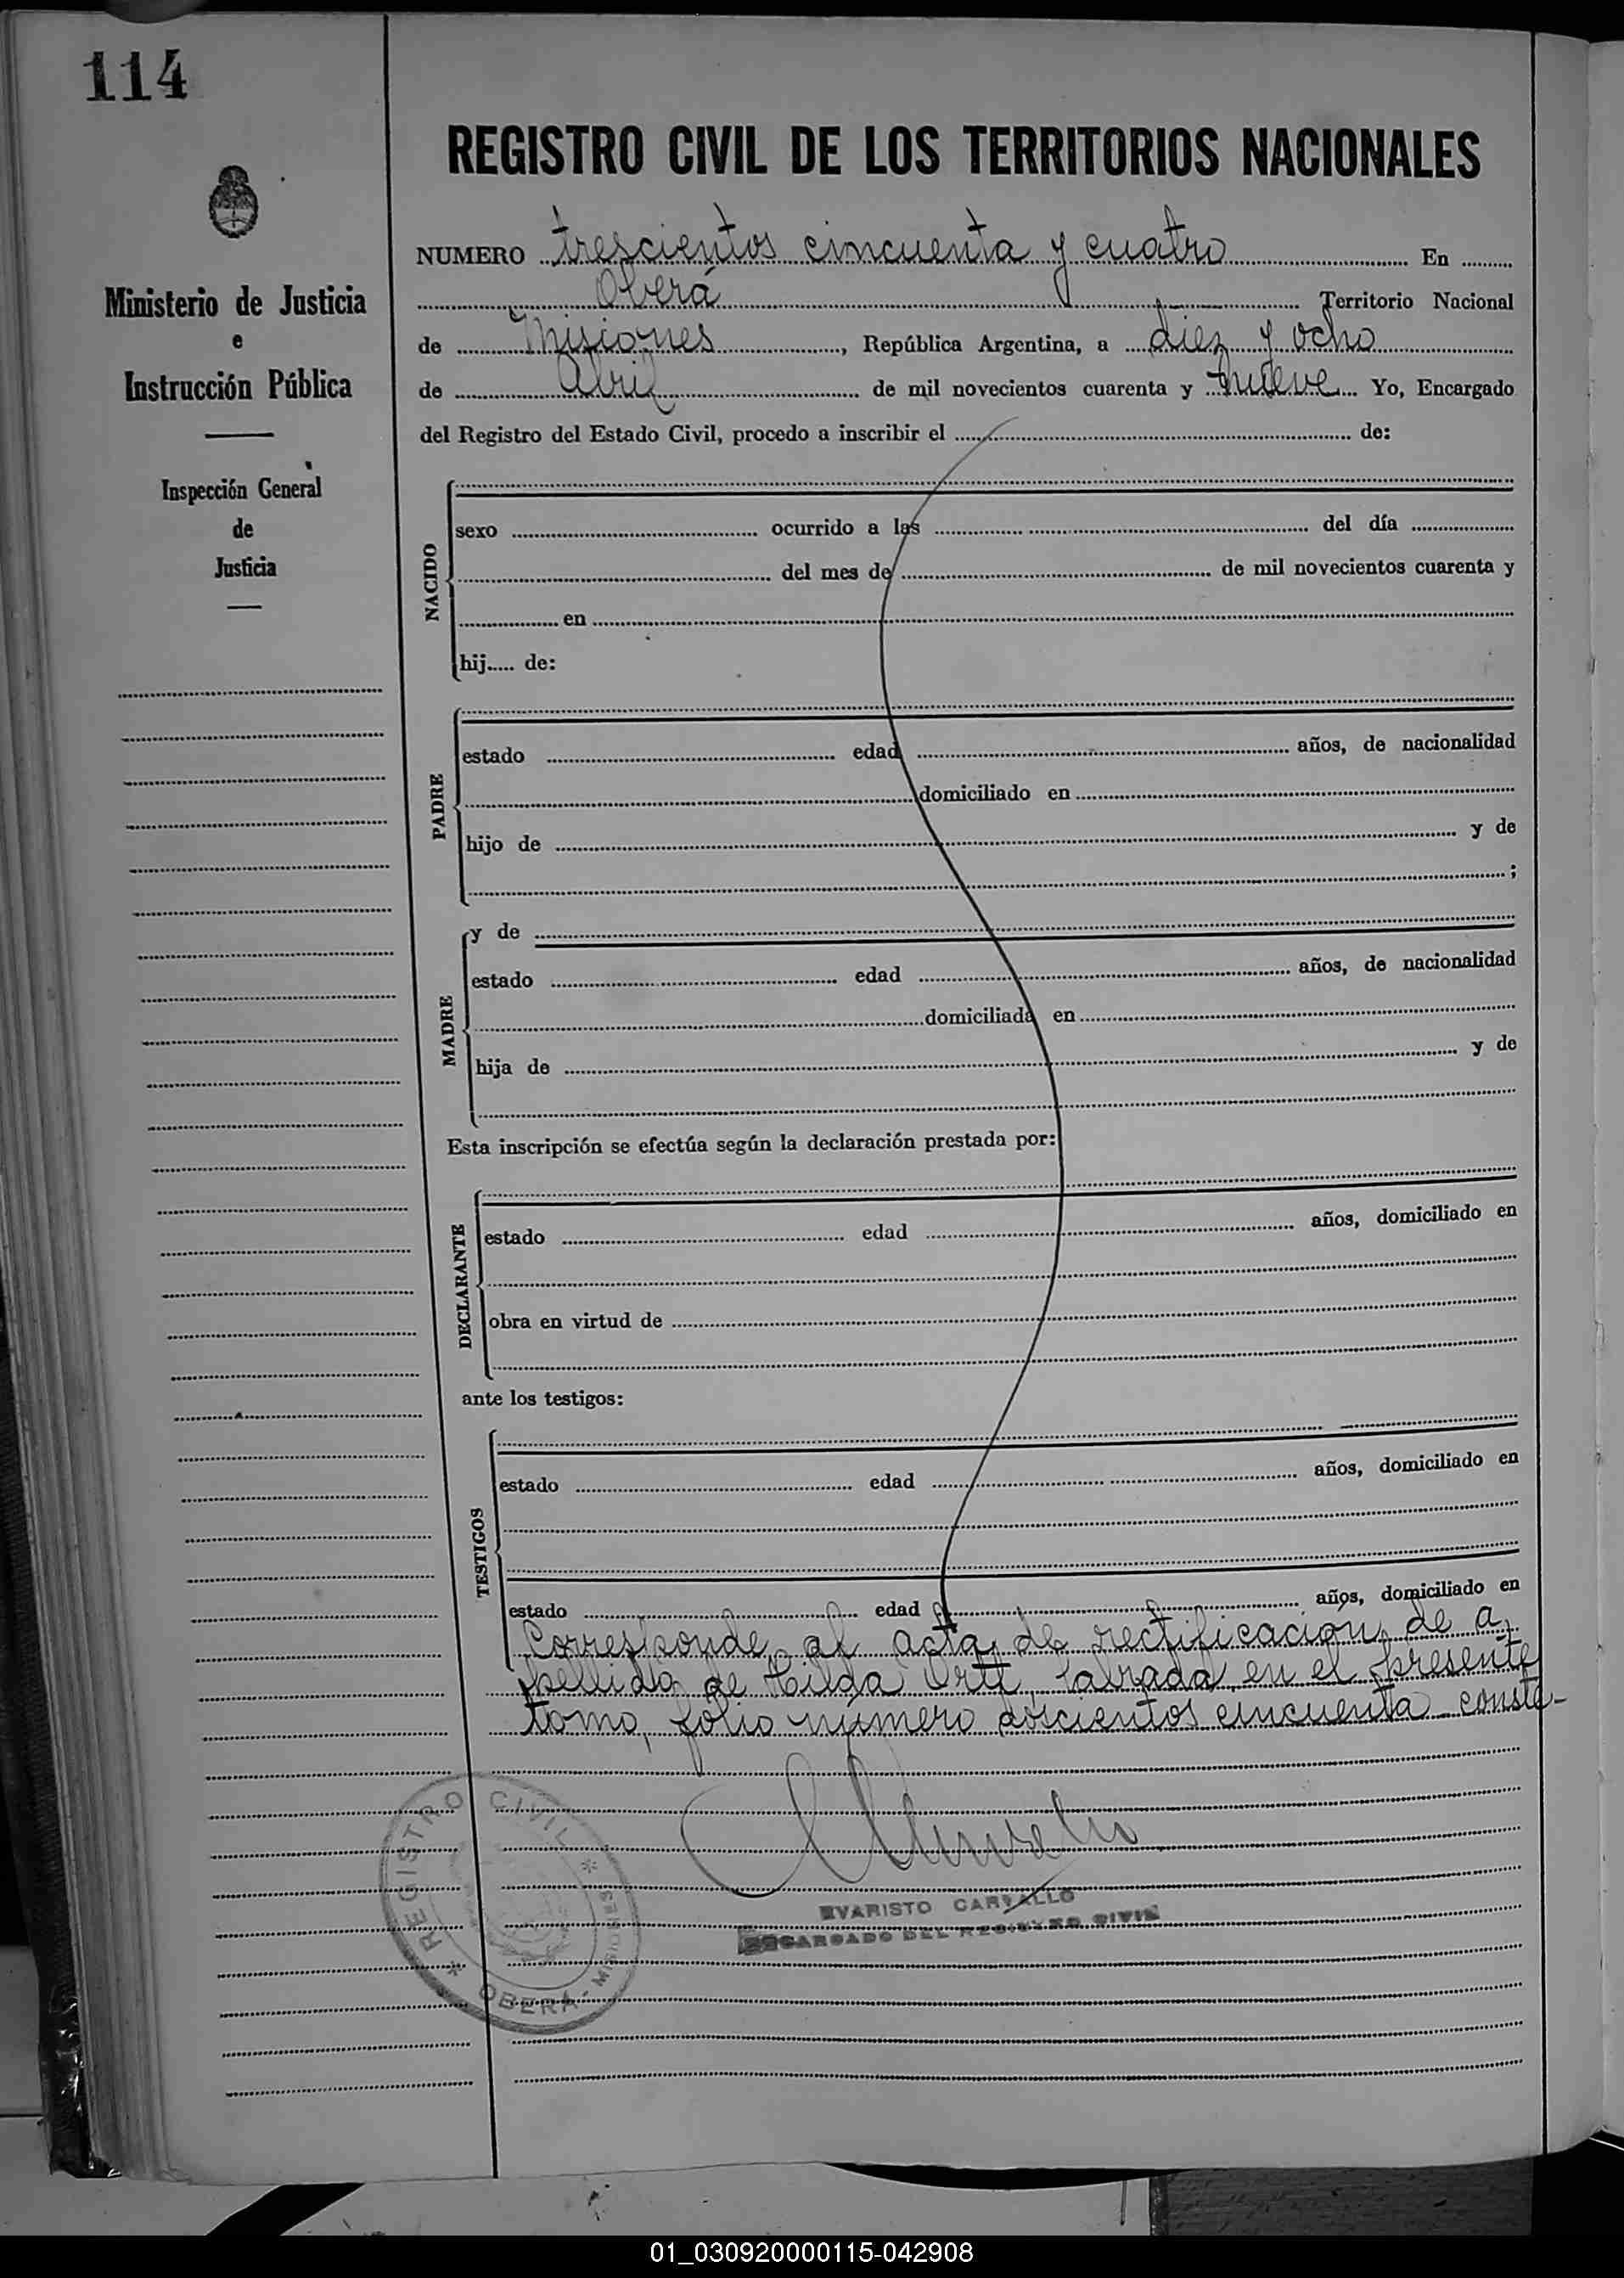 114
Ministerio de Justicia
e
Instrucción Pública
Inspección General
de
Justicia
REGISTRO CIVIL DE LOS TERRITORIOS NACIONALES
NUMERO trescientos cincuenta y cuatro En
Oberá Territorio Nacional
de Misiones, República Argentina, a diez y ocho
de Abril de mil novecientos cuarenta y nueve Yo, Encargado
del Registro del Estado Civil, procedo a inscribir el de:
NACIDO
sexo ocurrido a las del día
del mes de de mil novecientos cuarenta y
en
hij..... de:
PADRE
estado edad años, de nacionalidad
domiciliado en
hijo de y de
;
MADRE
y de
estado edad años, de nacionalidad
domiciliada en
hija de y de
Esta inscripción se efectúa según la declaración prestada por:
DECLARANTE
estado edad años, domiciliado en
obra en virtud de
ante los testigos:
TESTIGOS
estado edad años, domiciliado en
estado edad años, domiciliado en
Corresponde al acta de rectificación de a
pellido de Hilda Ortt, labrada en el presente
tomo, folio número doscientos cincuenta conste-
REGISTRO CIVIL * MISIONES - OBERÁ *
EVARISTO CARVALLO
ENCARGADO DEL REGISTRO CIVIL
01_030920000115-042908